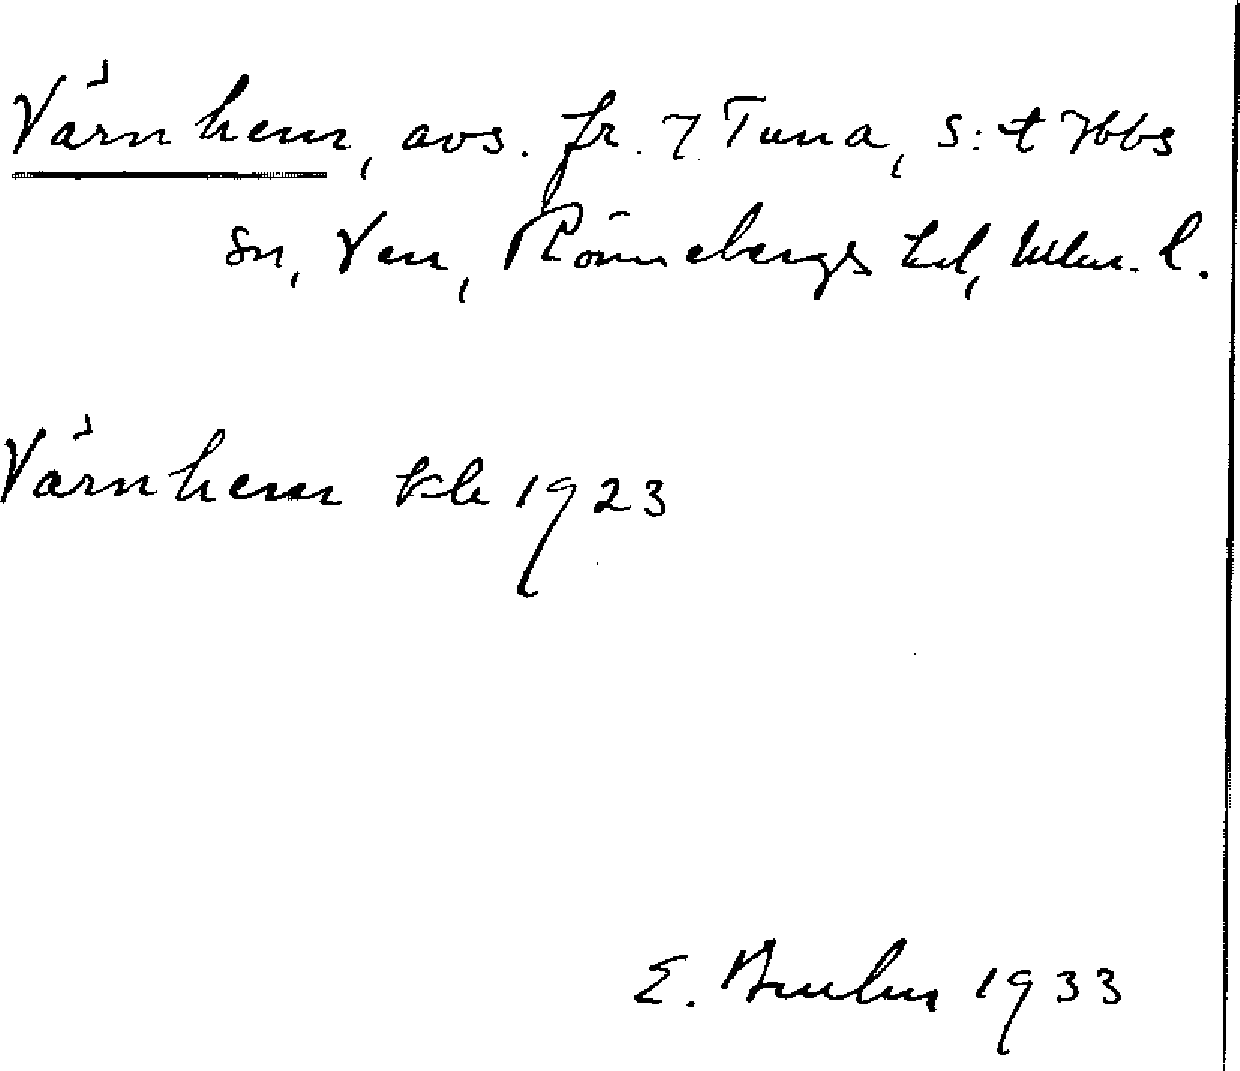 Värnhem, avs. fr. 7 Tuna, S:t Ibbs
sn, Ven, Rönnebergs hd, Mlm. l.
Värnhem kb 1923
E. 1933